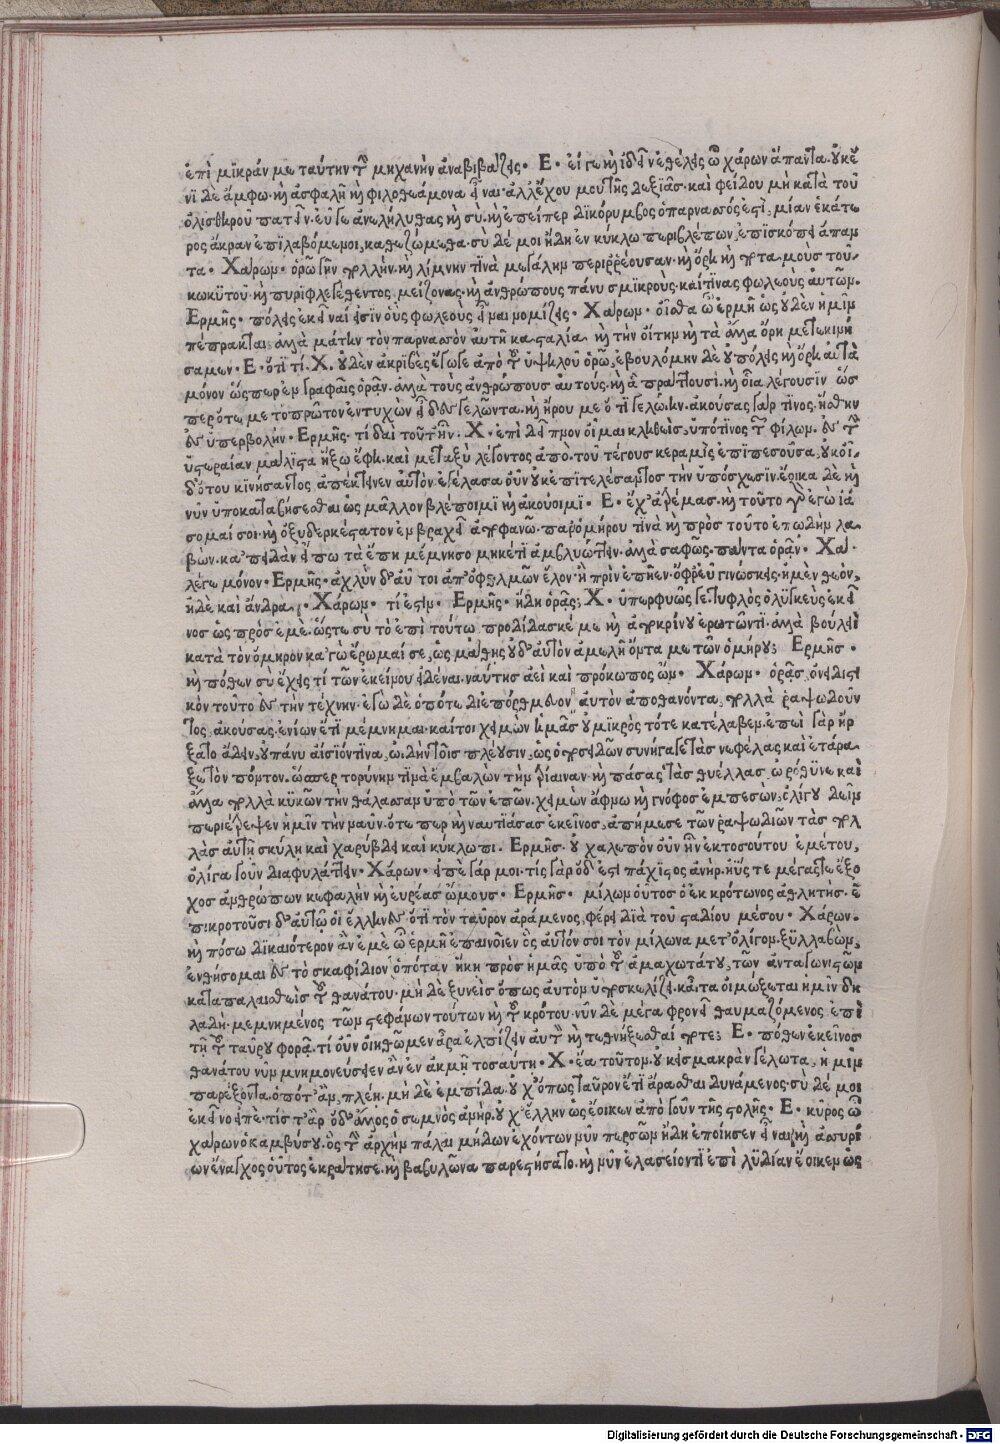 ἐπὶ μικράν με ταύτην τὴν μηχανὴν ἀναβιβάζεις. Ε. εἴ γε καὶ ἰδεῖν ἐθέλεις ὦ χάρων ἅπαντα. οὐκ ἔ
νι δὲ ἄμφω καὶ ἀσφαλῆ καὶ φιλοθεάμονα εἶναι. ἀλλ' ἔχου μου τῆς δεξιᾶς. καὶ φείδου μὴ κατὰ τοῦ
ὀλισθηροῦ πατεῖν. εὖ γε ἀνελήλυθας καὶ σύ. καὶ ἐπείπερ δικόρυμβος ὁ παρνασός ἐστι, μίαν ἑκάτε
ρος ἄκραν ἐπιλαβόμενοι, καθεζώμεθα. σὺ δέ μοι ἤδη ἐν κύκλω περιβλέπων, ἐπισκόπει ἅπαν
τα. Χάρων. ὁρῶ γῆν πολλὴν. καὶ λίμνην τινὰ μεγάλην περιρρέουσαν. καὶ ὄρη καὶ ποταμοὺς τοῦ
κωκυτοῦ. καὶ πυριφλεγέθοντος μείζονας. καὶ ἀνθρώπους πάνυ σμικρούς. καί τινας φωλεοὺς αὐτῶν.
Ερμῆς. πόλεις ἐκεῖναί εἰσὶν οὓς φωλεοὺς εἶναι νομίζεις. Χάρων. οἶσθα ὦ ἑρμῆ ὡς οὐδὲν ἡμῖν
πέπρακται; ἀλλὰ μάτην τὸν παρνασὸν αὐτῆ κασταλία. καὶ τὴν οἴτην καὶ τὰ ἄλλα ὄρη μετεκινή
σαμεν. Ε. ὅτι τί. Χ. οὐδὲν ἀκριβὲς ἔγωγε ἀπὸ τοῦ ὑψηλοῦ ὁρῶ, ἐβουλόμην δὲ οὐ πόλεις καὶ ὄρη αὐτὰ
μόνον ὥσπερ ἐν γραφαῖς ὁρᾶν. ἀλλὰ τοὺς ἀνθρώπους αὐτούς. καὶ ἃ πράττουσι. καὶ οἷα λέγουσιν ὥσ
περ ὅτε με τὸ πρῶτον ἐντυχὼν εἶδες γελῶντα. καὶ ἤρου με ὅ τι γελώην. ἀκούσας γάρ τινος. ἥσθην
ἐς ὑπερβολήν. Ερμῆς. τί δαὶ τοῦτ' ἦν. Χ. ἐπὶ δεῖπνον οἶμαι κληθεὶς, ὑπό τινος τῶν φίλων. ἐς τὴν
ὑστεραίαν μάλιστα ἥξω ἔφη. καὶ μεταξὺ λέγοντος ἀπὸ τοῦ τέγους κεραμὶς ἐπιπεσοῦσα, οὐκ οἶ
δ' ὅτου κινήσαντος, ἀπέκτεινεν αὐτόν. ἐγέλασα οὖν οὐκ ἐπιτελέσαντος τὴν ὑπόσχεσιν. ἔοικα δὲ καὶ
νῦν ὑποκαταβήσεσθαι ὡς μᾶλλον βλέποιμι καὶ ἀκούοιμι. Ε. ἔχ' ἀτρέμας. καὶ τοῦτο γὰρ ἐγὼ ἰά
σομαί σοι. καὶ ὀξυδερκέστατον ἐν βραχεῖ ἀποφανῶ. παρ' ὁμήρου τινὰ καὶ πρὸς τοῦτο ἐπωδὴν λα
βών. κἀπειδὰν εἴπω τὰ ἔπη μέμνησο μηκέτι ἀμβλυώττειν. ἀλλὰ σαφῶς πάντα ὁρᾶν. Χάρ.
λέγε μόνον. Ερμῆς. ἀχλὺν δ' αὖ τοι ἀπ' ὀφθαλμῶν ἕλον. ἣ πρὶν ἐπῆεν. ὄφρ' εὖ γινώσκεις. ἠμὲν θεὸν,
ἠδὲ καὶ ἄνδρα. Χάρων. τί ἐστιν. Ερμῆς. ἤδη ὁρᾶς; Χ. ὑπερφυῶς γε. τυφλὸς ὁ λυγκεὺς ἐκεῖ
νος ὡς πρὸς ἐμέ. ὥστε σὺ τὸ ἐπὶ τούτω προδίδασκέ με καὶ ἀποκρίνου ἐρωτῶντι. ἀλλὰ βούλει
κατὰ τὸν ὅμηρον κἀγὼ ἔρωμαί σε, ὡς μάθης οὐδ' αὐτὸν ἀμελῆ ὄντα με τῶν ὁμήρου; Ερμῆς.
καὶ πόθεν σὺ ἔχεις τί τῶν ἐκείνου εἰδέναι. ναύτης ἀεὶ καὶ πρόκωπος ὤν. Χάρων. ὁρᾷς, ὀνειδιστι
κὸν τοῦτο ἐς τὴν τέχνην. ἐγὼ δὲ ὁπότε διεπόρθμευον αὐτὸν ἀποθανόντα, πολλὰ ῥαψωδοῦν
τος ἀκούσας, ἐνίων ἔτι μέμνημαι. καίτοι χειμὼν ἡμᾶς οὐ μικρὸς τότε κατέλαβεν. ἐπεὶ γὰρ ἤρ
ξατο ἄδειν, οὐ πάνυ αἴσιόν τινα ὠδὴν τοῖς πλέουσιν, ὡς ὁ ποσειδῶν συνήγαγε τὰς νεφέλας καὶ ἐτάρα
ξε τὸν πόντον. ὥσπερ τορύνην τινὰ ἐμβαλων τὴν τρίαιναν. καὶ πάσας τὰς θυέλλας ὠρόθυνε καὶ
ἄλλα πολλὰ κυκῶν τὴν θάλασσαν ὑπὸ τῶν ἐπῶν. χειμὼν ἄφνω καὶ γνόφος ἐμπεσὼν, ὀλίγου δεῖν
περιέτρεψεν ἡμῖν τὴν ναῦν. ὅτε περ καὶ ναυτιάσας ἐκεῖνος, ἀπήμεσε τῶν ῥαψωδιῶν τὰς πολ
λὰς αὐτῆ σκύλη καὶ χαρύβδει καὶ κύκλωπι. Ερμῆς. οὐ χαλεπὸν οὖν ἦν ἐκ τοσούτου ἐμέτου,
ὀλίγα γοῦν διαφυλάττειν. Χάρων. εἰπὲ γάρ μοι. τίς γὰρ ὅδ' ἐστὶ πάχιστος ἀνὴρ. ἠΰς τε μέγας τε ἔξο
χος ἀνθρώπων κεφαλὴν καὶ εὐρέας ὤμους. Ερμῆς. μίλων οὗτος ὁ ἐκ κρότωνος ἀθλητής. ἐ
πικροτοῦσι δ' αὐτῶ οἱ ἕλληνες. ὅτι τὸν ταῦρον ἀράμενος, φέρει διὰ τοῦ σταδίου μέσου. Χάρων.
καὶ πόσω δικαιότερον ἂν ἐμὲ ὦ ἑρμῆ ἐπαινοῖεν ὃς αὐτόν σοι τὸν μίλωνα μετ' ὀλίγον ξυλλαβὼν,
ἐνθήσομαι ἐς τὸ σκαφίδιον ὁπόταν ἥκη πρὸς ἡμᾶς ὑπὸ τοῦ ἀμαχωτάτου, τῶν ἀνταγωνιστῶν
καταπαλαισθεὶς τοῦ θανάτου. μὴ δὲ ξυνεὶς ὅπως αὐτὸν ὑποσκελίζει. κᾆτα οἰμώξεται ἡμῖν δη
λαδὴ. μεμνημένος τῶν στεφάνων τούτων καὶ τοῦ κρότου. νῦν δὲ μέγα φρονεῖ θαυμαζόμενος ἐπὶ
τῆ τοῦ ταύρου φορᾶ. τί οὖν οἰηθῶμεν ἆρα ἐλπίζειν αὐτὸν καὶ τεθνήξεσθαί ποτε; Ε. πόθεν ἐκεῖνος
θανάτου νῦν μνημονεύσειεν ἂν ἐν ἀκμῆ τοσαύτη. Χ. ἔα τοῦτον. οὐκ εἰς μακρὰν γέλωτα, ἡμῖν
παρέξοντα. ὁπότ' ἂν, πλέη. μὴ δὲ ἐμπίδα. οὐχ ὅπως ταῦρον ἔτι ἄρασθαι δυνάμενος. σὺ δέ μοι
ἐκεῖνο εἰπέ. τίς τ' ἂρ ὅδ' ἄλλος ὁ σεμνὸς ἀνήρ. οὐχ ἕλλην ὡς ἔοικεν ἀπὸ γοῦν τῆς στολῆς. Ε. κῦρος ὦ
χάρων ὁ καμβύσου. ὃς τὴν ἀρχὴν πάλαι μήδων ἐχόντων νῦν περσῶν ἤδη ἐποίησεν εἶναι καὶ ἀσσυρί
ων ἔναγχος οὗτος ἐκράτησε. καὶ βαβυλῶνα παρεστήσατο. καὶ νῦν ἐλασείοντι ἐπὶ λυδίαν ἔοικεν ὡς
Digitalisierung gefördert durch die Deutsche Forschungsgemeinschaft - DFG